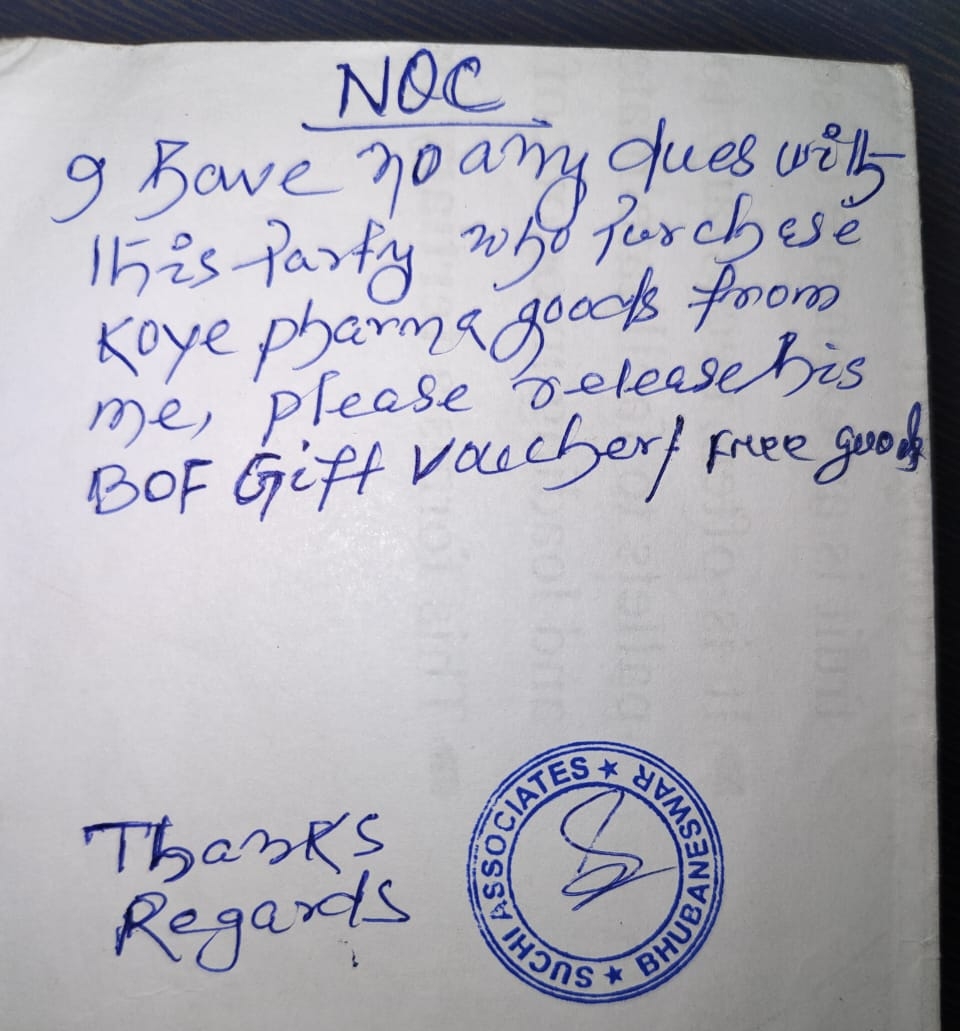 NOC
I have no any dues with
this Party who Purchese
Koye pharma goods from
me, please release his
BOF Gift Voucher/ Free goods
Thanks
Regards
SUCHI ASSOCIATES ★ BHUBANESWAR ★